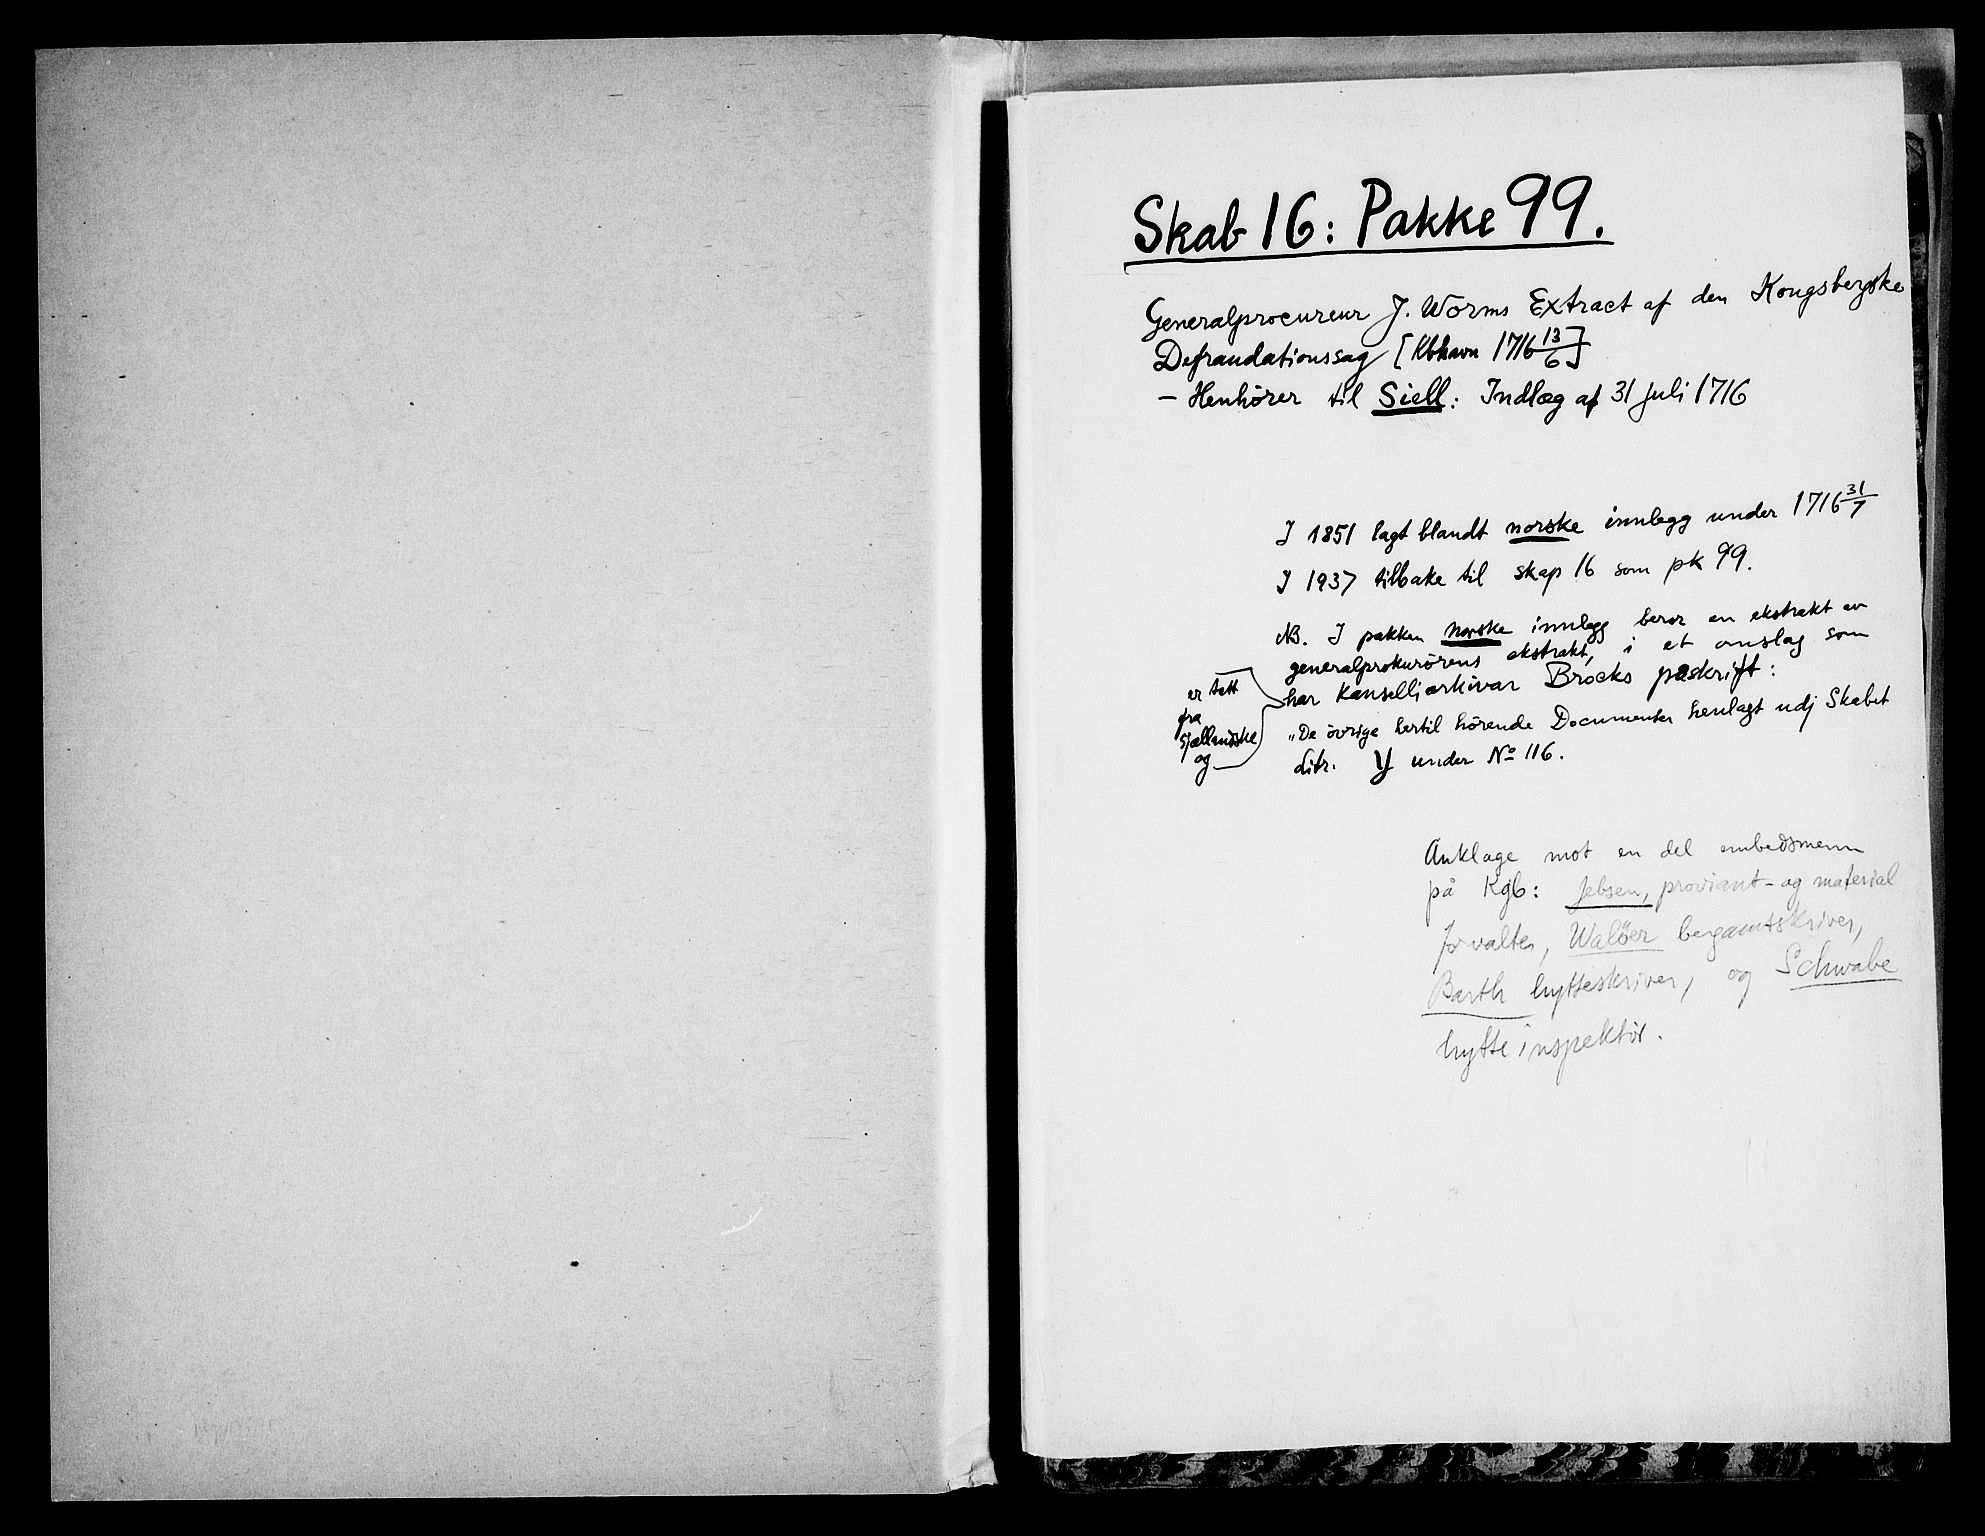 Skab 16: Pakke 99.
Generalprocureur J. Worms Extract af den Kongsbergske
Defraudationssag [Kbhavn 1716 13/6]
– Henhörer til Siell: Indlæg af 31 Juli 1716
I 1851 lagt blandt norske innlegg under 1716 31/7
I 1937 tilbake til skap 16 som pk 99.
NB. I pakken norske innlegg beror en ekstrakt av
generalprokurörens ekstrakt, i et omslag som
er tatt
fra
sjællandske
og
har kanselliarkivar Brocks påskrift:
"De övrige hertil hörende Documenter henlagt udj Skabet
litr. Y under No 116.
Anklage mot en del embedsmenn
på Kgb: Jebsen, proviant- og material
forvalter, Walöer bergamtskriver,
Barth hytteskriver, og Schwabe
hytteinspektör.